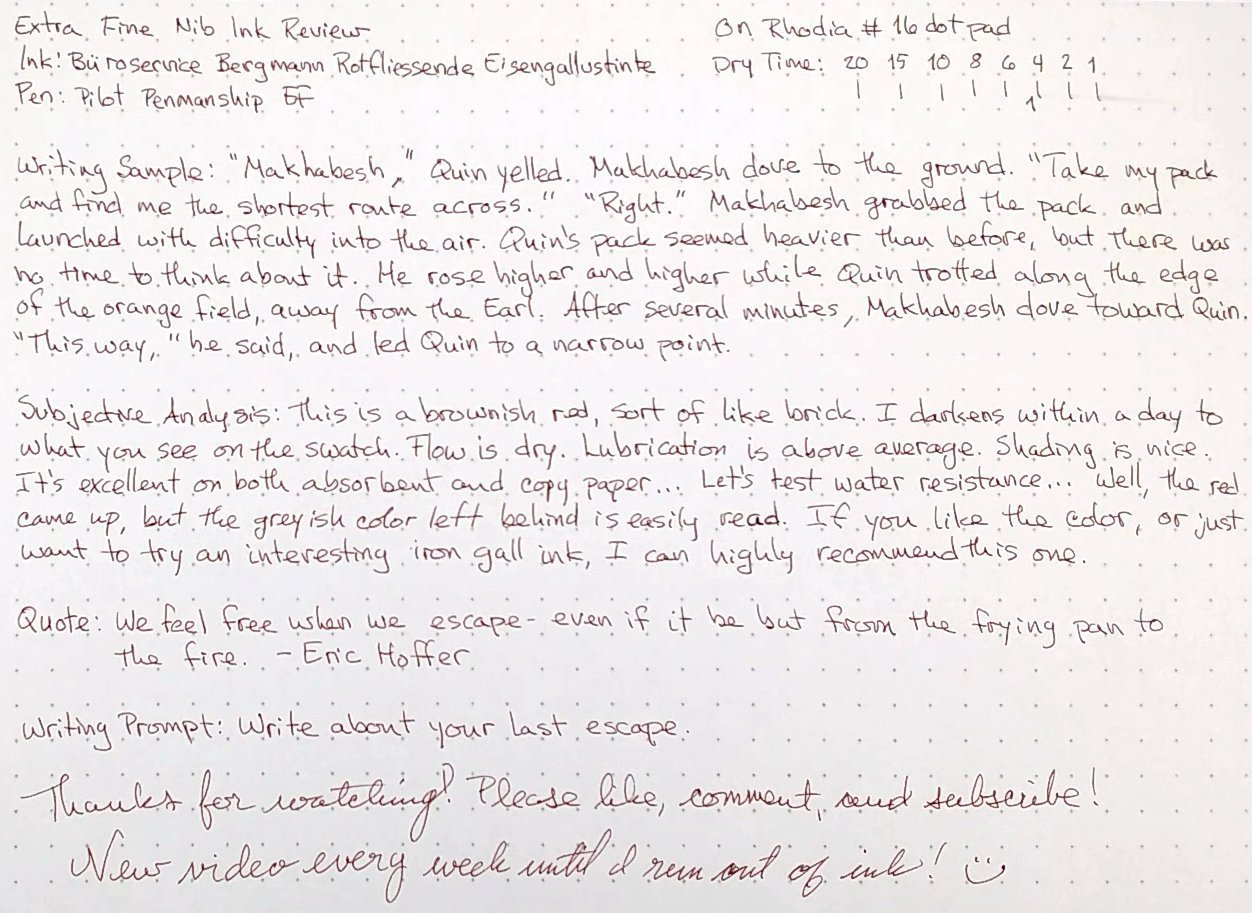 Extra Fine Nib Ink Review
On Rhodia # 16 dot pad
Ink: Büroservice Bergmann Rotfliessende Eisengallustinte
Dry Time: 20 15 10 8 6 4 2 1
Pen: Pilot Penmanship EF
Writing Sample: "Makhabesh," Quin yelled. Makhabesh dove to the ground. "Take my pack
and find me the shortest route across." "Right." Makhabesh grabbed the pack and
launched with difficulty into the air. Quin's pack seemed heavier than before, but there was
no time to think about it. He rose higher and higher while Quin trotted along the edge
of the orange field, away from the Earl. After several minutes, Makhabesh dove toward Quin.
"This way," he said, and led Quin to a narrow point.
Subjective Analysis: This is a brownish red, sort of like brick. I darkens within a day to
what you see on the swatch. Flow is dry. Lubrication is above average. Shading is nice.
It's excellent on both absorbent and copy paper... Let's test water resistance... Well, the red
came up, but the greyish color left behind is easily read. If you like the color, or just
want to try an interesting iron gall ink, I can highly recommend this one.
Quote: We feel free when we escape - even if it be but from the frying pan to
the fire. - Eric Hoffer
Writing Prompt: Write about your last escape.
Thanks for watching! Please like, comment, and subscribe!
New video every week until I run out of ink! :)